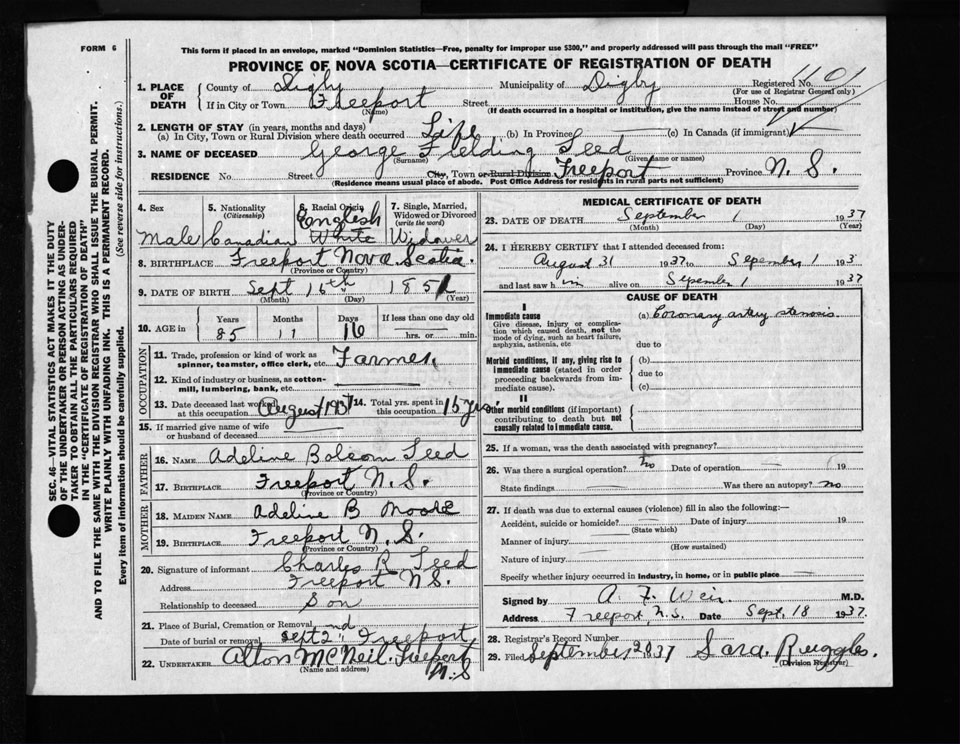 FORM 6
This form if placed in an envelope, marked "Dominion Statistics—Free, penalty for improper use $300," and properly addressed will pass through the mail "FREE"
PROVINCE OF NOVA SCOTIA—CERTIFICATE OF REGISTRATION OF DEATH
SEC. 46—VITAL STATISTICS ACT MAKES IT THE DUTY
OF THE UNDERTAKER OR PERSON ACTING AS UNDER-
TAKER TO OBTAIN ALL THE PARTICULARS REQUIRED
IN THE "CERTIFICATE OF REGISTRATION OF DEATH"
AND TO FILE THE SAME WITH THE DIVISION REGISTRAR WHO SHALL ISSUE THE BURIAL PERMIT.
WRITE PLAINLY WITH UNFADING INK. THIS IS A PERMANENT RECORD.
Every item of information should be carefully supplied. (See reverse side for instructions.)
1. PLACE OF DEATH County of Digby Municipality of Digby Registered No. 1101
(For use of Registrar General only)
If in City or Town Freeport Street House No.
(Name) (If death occurred in a hospital or institution, give the name instead of street and number)
2. LENGTH OF STAY (in years, months and days)
(a) In City, Town or Rural Division where death occurred Life (b) In Province (c) In Canada (if immigrant)
3. NAME OF DECEASED George Fielding Teed
(Surname) (Given name or names)
RESIDENCE No. Street City, Town or Rural Division Freeport Province N. S.
(Residence means usual place of abode. Post Office Address for residents in rural parts not sufficient)
4. Sex 5. Nationality (Citizenship) 6. Racial Origin 7. Single, Married, Widowed or Divorced (write the word)
Male Canadian English White Widower
8. BIRTHPLACE Freeport Nova Scotia
(Province or Country)
9. DATE OF BIRTH Sept 16th 1851
(Month) (Day) (Year)
10. AGE in Years Months Days If less than one day old
85 11 16 hrs. or min.
OCCUPATION
11. Trade, profession or kind of work as spinner, teamster, office clerk, etc. Farmer
12. Kind of industry or business, as cotton-mill, lumbering, bank, etc.
13. Date deceased last worked at this occupation August 1937 14. Total yrs. spent in this occupation 15 yrs.
15. If married give name of wife or husband of deceased
FATHER
16. NAME Adeline Bolcom Teed
17. BIRTHPLACE Freeport N. S.
(Province or Country)
MOTHER
18. MAIDEN NAME Adeline B Moore
19. BIRTHPLACE Freeport N. S.
(Province or Country)
20. Signature of informant Charles R. Teed
Address Freeport N.S.
Relationship to deceased Son
21. Place of Burial, Cremation or Removal
Date of burial or removal Sept 2nd Freeport
22. UNDERTAKER Alton McNeil. Freeport N.S
(Name and address)
MEDICAL CERTIFICATE OF DEATH
23. DATE OF DEATH September 1 1937
(Month) (Day) (Year)
24. I HEREBY CERTIFY that I attended deceased from:
August 31 1937 to Sepember 1 193
and last saw him alive on Sepember 1 1937
CAUSE OF DEATH
I
Immediate cause (a) Coronary artery stenosis
Give disease, injury or complication which caused death, not the mode of dying, such as heart failure, asphyxia, asthenia, etc
due to
Morbid conditions, if any, giving rise to immediate cause (stated in order proceeding backwards from immediate cause)
(b)
due to
(c)
II
Other morbid conditions (if important) contributing to death but not causally related to immediate cause.
25. If a woman, was the death associated with pregnancy?
26. Was there a surgical operation? no Date of operation 19
State findings Was there an autopsy? no
27. If death was due to external causes (violence) fill in also the following:—
Accident, suicide or homicide? Date of injury 19
(State which)
Manner of injury
(How sustained)
Nature of injury
Specify whether injury occurred in industry, in home, or in public place
Signed by A. F. Weir M.D.
Address Freeport, N.S. Date Sept. 18 1937.
28. Registrar's Record Number
29. Filed September 20 1937 Sara. Ruggles.
(Division Registrar)